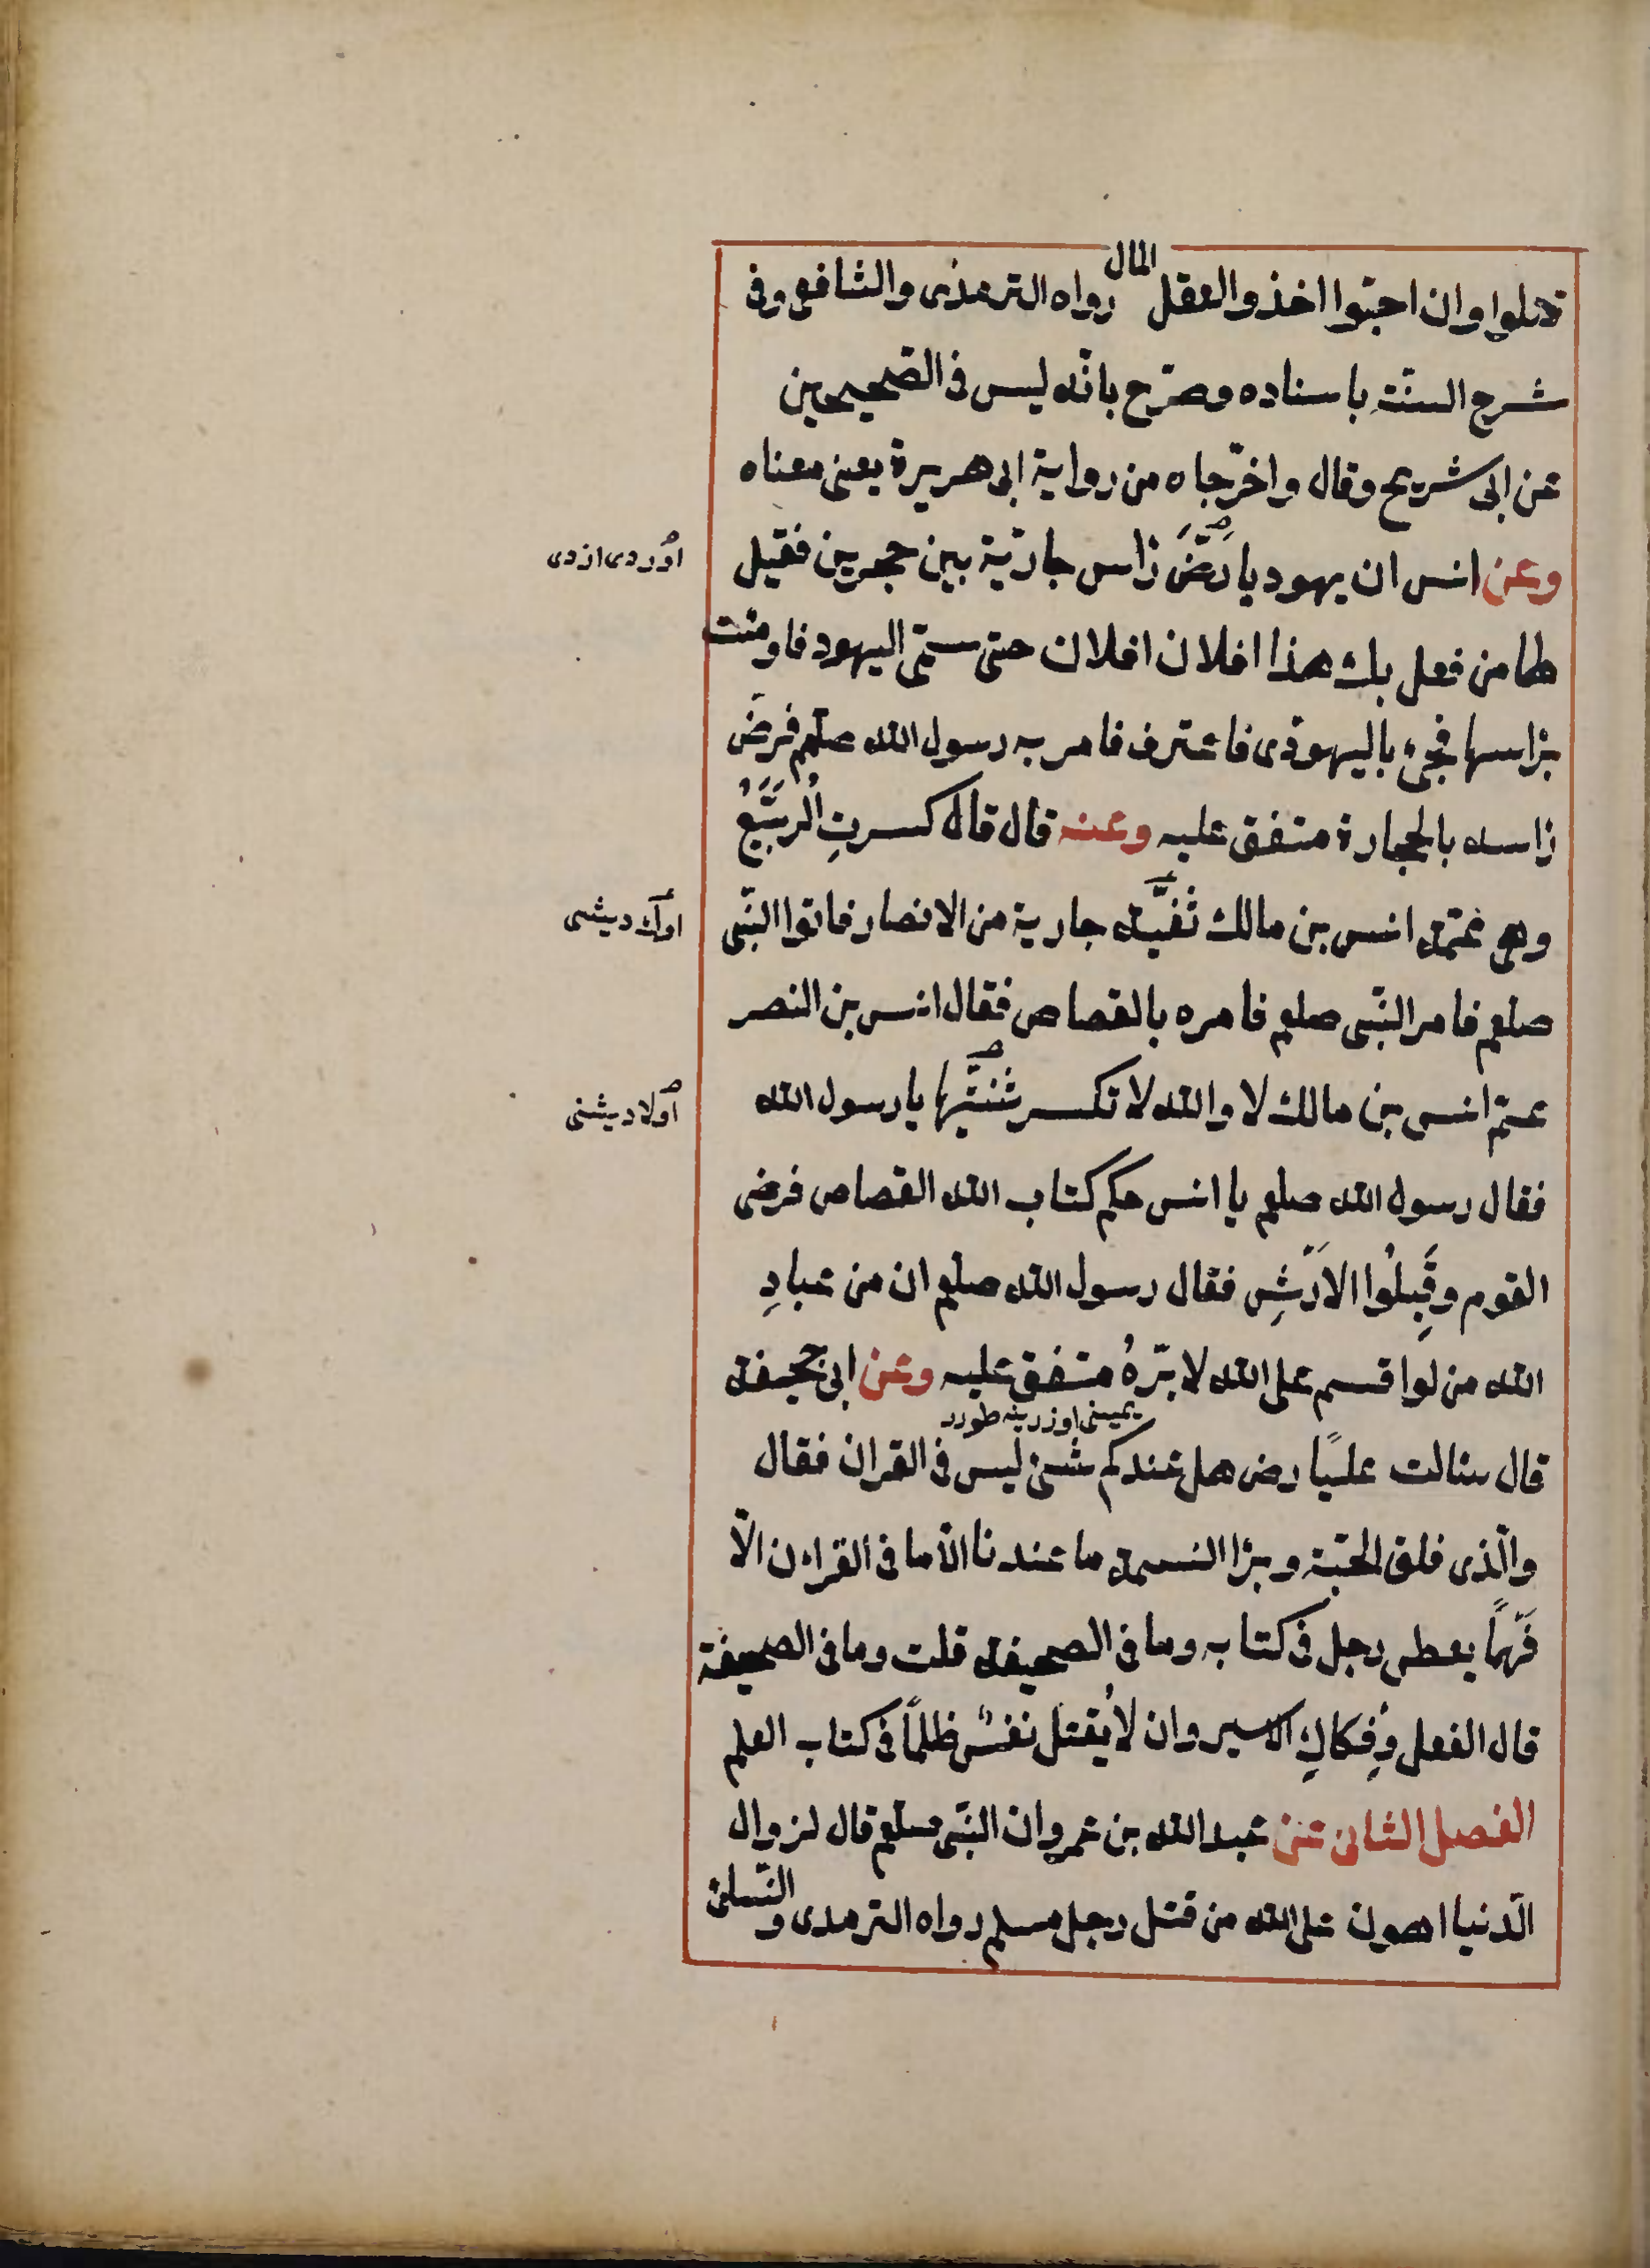 قتلوا وان احبّوا اخذوا العقل المال رواه الترمذى والشافعى وفى
شرح السنّة باسناده وصرّح بانّه ليس فى الصّحيحين
عن ابى شريح وقال واخرّجاه من رواية ابى هريرة يعنى معناه
وعن انس ان يهوديا رَضَّ رٔاس جاريّة بين حجرين فقيل
لها من فعل بك هذا افلان افلان حتى سمّى اليهود فاومئت
برٔاسها فجىء باليهودّى فاعترف فامر به رسول الله صلّعم فرضّ
رٔاسه بالحجارة متفق عليه وعنه قال قال كسرتِ الرُبَيِّعُ
وهى عمّة انس بن مالك ثَنِيَّة جارية من الانصار فاتوا النّبى
صلعم فامر النّبى صلعم فامره بالقصاص فقال انس بن النصر
عمّ انس بن مالك لا والله لا تكسر ثنيّتها يا رسول الله
فقال رسول الله صلعم يا انس حكم كتاب الله القصاص فرضى
القوم وقَبِلُوا الاَرْشِ فقال رسول الله صلّعم ان من عبادِ
الله من لو اقسم على الله لابرّهُ متفق عليه وعن ابى جحيفة
يمينى اوزرينه طورر
قال سٔالت عليًا رض هل عندكم شىٔ ليس فى القران فقال
والّذى فلق الحبّة وبرٔا النسمة ما عندنا الّا ما فى القراءن الّا
فَهْمًا يعطى رجل فى كتابه وما فى الصحيفة قلت وما فى الصحيفة
قال الفعل وفِكاكِ الاسير وان لا يُقتل نفسٌ ظلمًا فى كتاب العلم
الفصل الثانى عن عبد الله بن عمرو ان النّبى صلّعم قال لزوال
الّدنيا اهون على الله من قتل رجل مسلم رواه الترمدى والنّسائ
اوردى ازدى
اوڭ ديشى
اولا ديشنى